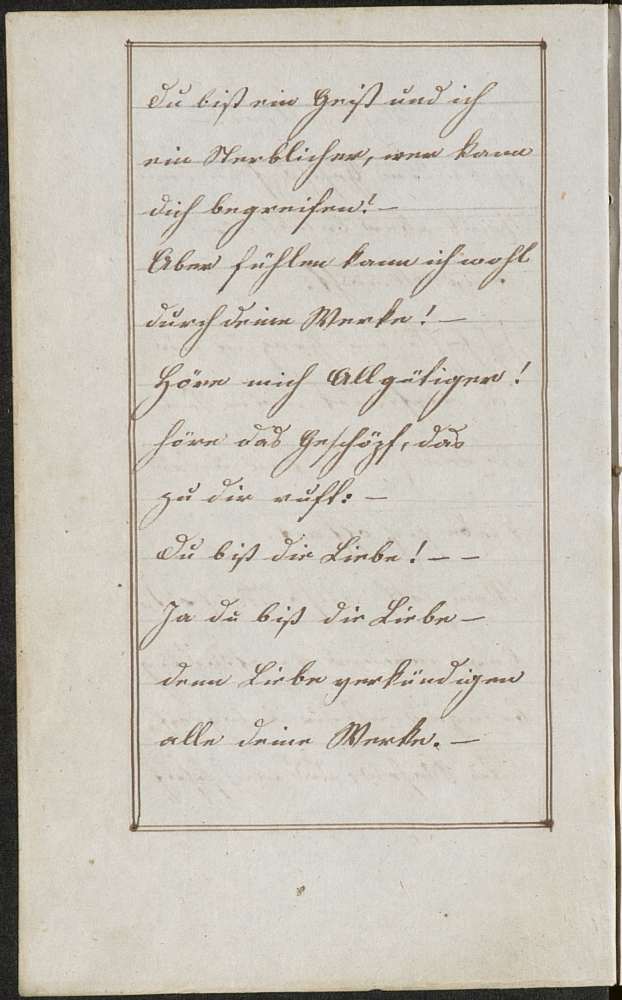 Du bist ein Geist und ich
ein Sterblicher, wer kann
dich begreifen! –
Aber fühlen kann ich wohl
durch deine Werke! –
Höre mich Allgütiger!
höre das Geschöpf, das
zu dir ruft: –
Du bist die Liebe! – –
Ja du bist die Liebe –
denn Liebe verkündigen
alle deine Werke. –